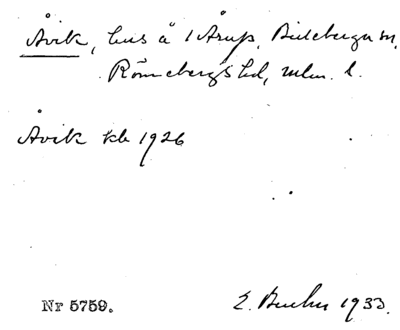 Åvik, hus å 1 Årup, Bilebergа sn,
Rönnebergs hd, Mlm. l.
Åvik kb 1926
Nr 5759.
E. Buehr 1933.